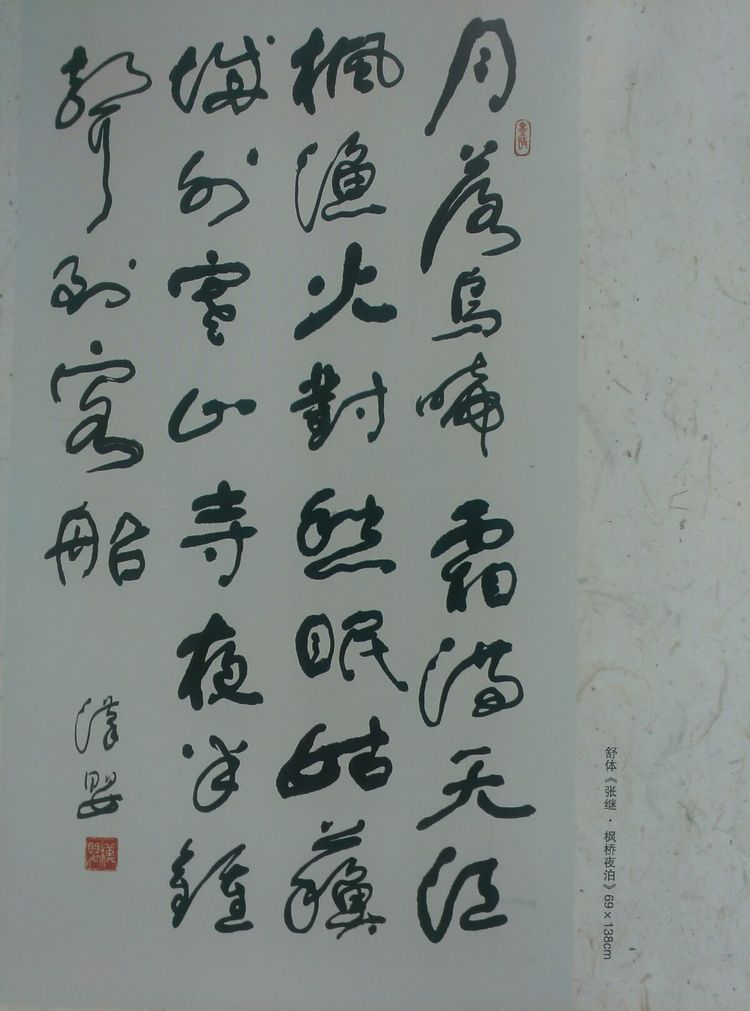 月落烏啼霜满天江
楓漁火對愁眠姑蘇
城外寒山寺夜半鐘
聲到客船
漢嬰
舒体《张继·枫桥夜泊》69×138cm